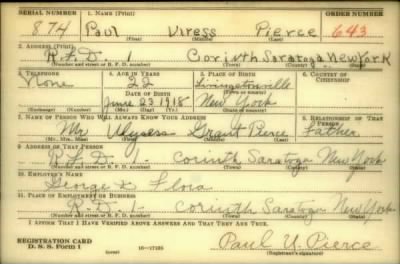 SERIAL NUMBER 1. NAME (Print) ORDER NUMBER
874 Paul Viress Pierce 643
(First) (Middle) (Last)
2. ADDRESS (Print)
R.F.D. 1 Corinth Saratoga New York
(Number and street or R. F. D. number) (Town) (County) (State)
3. TELEPHONE 4. AGE IN YEARS 5. PLACE OF BIRTH 6. COUNTRY OF CITIZENSHIP
None 22 Livingstonville
DATE OF BIRTH (Town or county)
June 23 1918 New York
(Exchange) (Number) (Mo.) (Day) (Yr.) (State or country)
7. NAME OF PERSON WHO WILL ALWAYS KNOW YOUR ADDRESS 8. RELATIONSHIP OF THAT PERSON
Mr Ulysess Grant Pierce Father
(Mr., Mrs., Miss) (First) (Middle) (Last)
9. ADDRESS OF THAT PERSON
R.F.D. 1- Corinth Saratoga New York
(Number and street or R. F. D. number) (Town) (County) (State)
10. EMPLOYER'S NAME
George K Flora
11. PLACE OF EMPLOYMENT OR BUSINESS
R.D. 1- Corinth Saratoga New York
(Number and street or R. F. D. number) (Town) (County) (State)
I AFFIRM THAT I HAVE VERIFIED ABOVE ANSWERS AND THAT THEY ARE TRUE.
REGISTRATION CARD
D. S. S. Form 1 16—17105 Paul V. Pierce
(Registrant's signature)